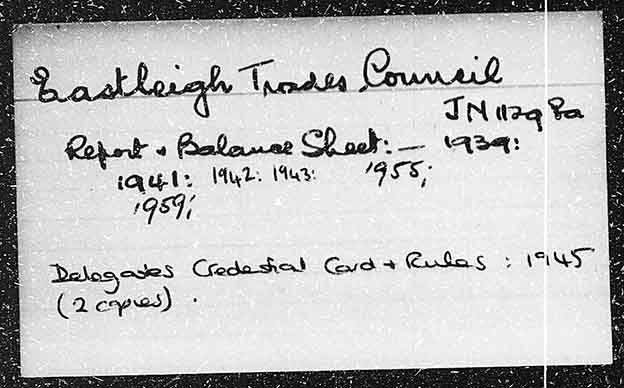 Eastleigh Trades Council
JN 1129 Ea
Report + Balance Sheet: — 1939:
1941: 1942: 1943: 1955;
1959;
Delegates Credential Card + Rules : 1945
(2 copies) .